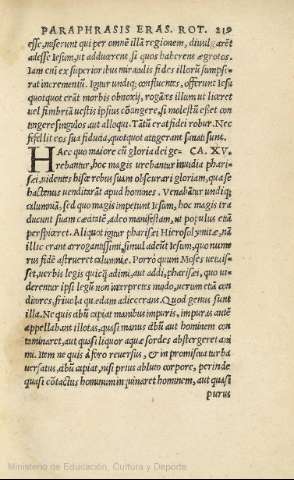 PARAPHRASIS ERAS. ROT. 219
esse, miserunt qui per omnē illā regionem, divulgarēt
adesse Iesum, ut adducerent, si quos haberent ægrotos.
Iam em̄ ex superioribus miraculis fides illorū sumpse-
rat incrementū. Igitur undiq; confluentes, offerunt Iesu
quotquot erāt morbis obnoxij, rogātes illum ut liceret
vel fimbriā vestis ipsius cōtingere, si molestū esset con
tingere singulos, aut alloqui. Tātū erat fidei robur. Nec
fefellit eos sua fiducia, quotquot attigerant sanati sunt.
Haec quo maiore cū gloria dei ge- CA. XV.
rebantur, hoc magis urebantur invidia phari-
sæi, videntes hisce rebus suam obscurari gloriam, qua se
hactenus venditarāt apud homines. Venabātur undiq;
calumniā, sed quo magis impetunt Iesum, hoc magis tra
ducunt suam cæcitatē, adeo manifestam, ut populus etiā
perspiceret. Aliquot igitur pharisæi Hierosolymitæ, nā
illic erant arrogantissimi, simul adeūt Iesum, quo nume
rus fidē astrueret calumniæ. Porrò quum Moses vetuis-
set, verbis legis quicq̄ adimi, aut addi, pharisæi, quo vi-
derentur ipsi legū non interpretes modo, verum etiā con
ditores, frivola quædam adiecerant. Quod genus sunt
illa. Ne quis cibū capiat manibus impuris, impuras autē
appellabant illotas, quasi manus cibū aut hominem con
taminaret, aut quasi liquor aqua sordes abstergeret ani
mi. Item ne quis à foro reversus, & in promiscua turba
versatus, cibū capiat, nisi prius abluto corpore, perinde
quasi cōtactus hominum inquinaret hominem, aut quasi
purus
Ministerio de Educación, Cultura y Deporte